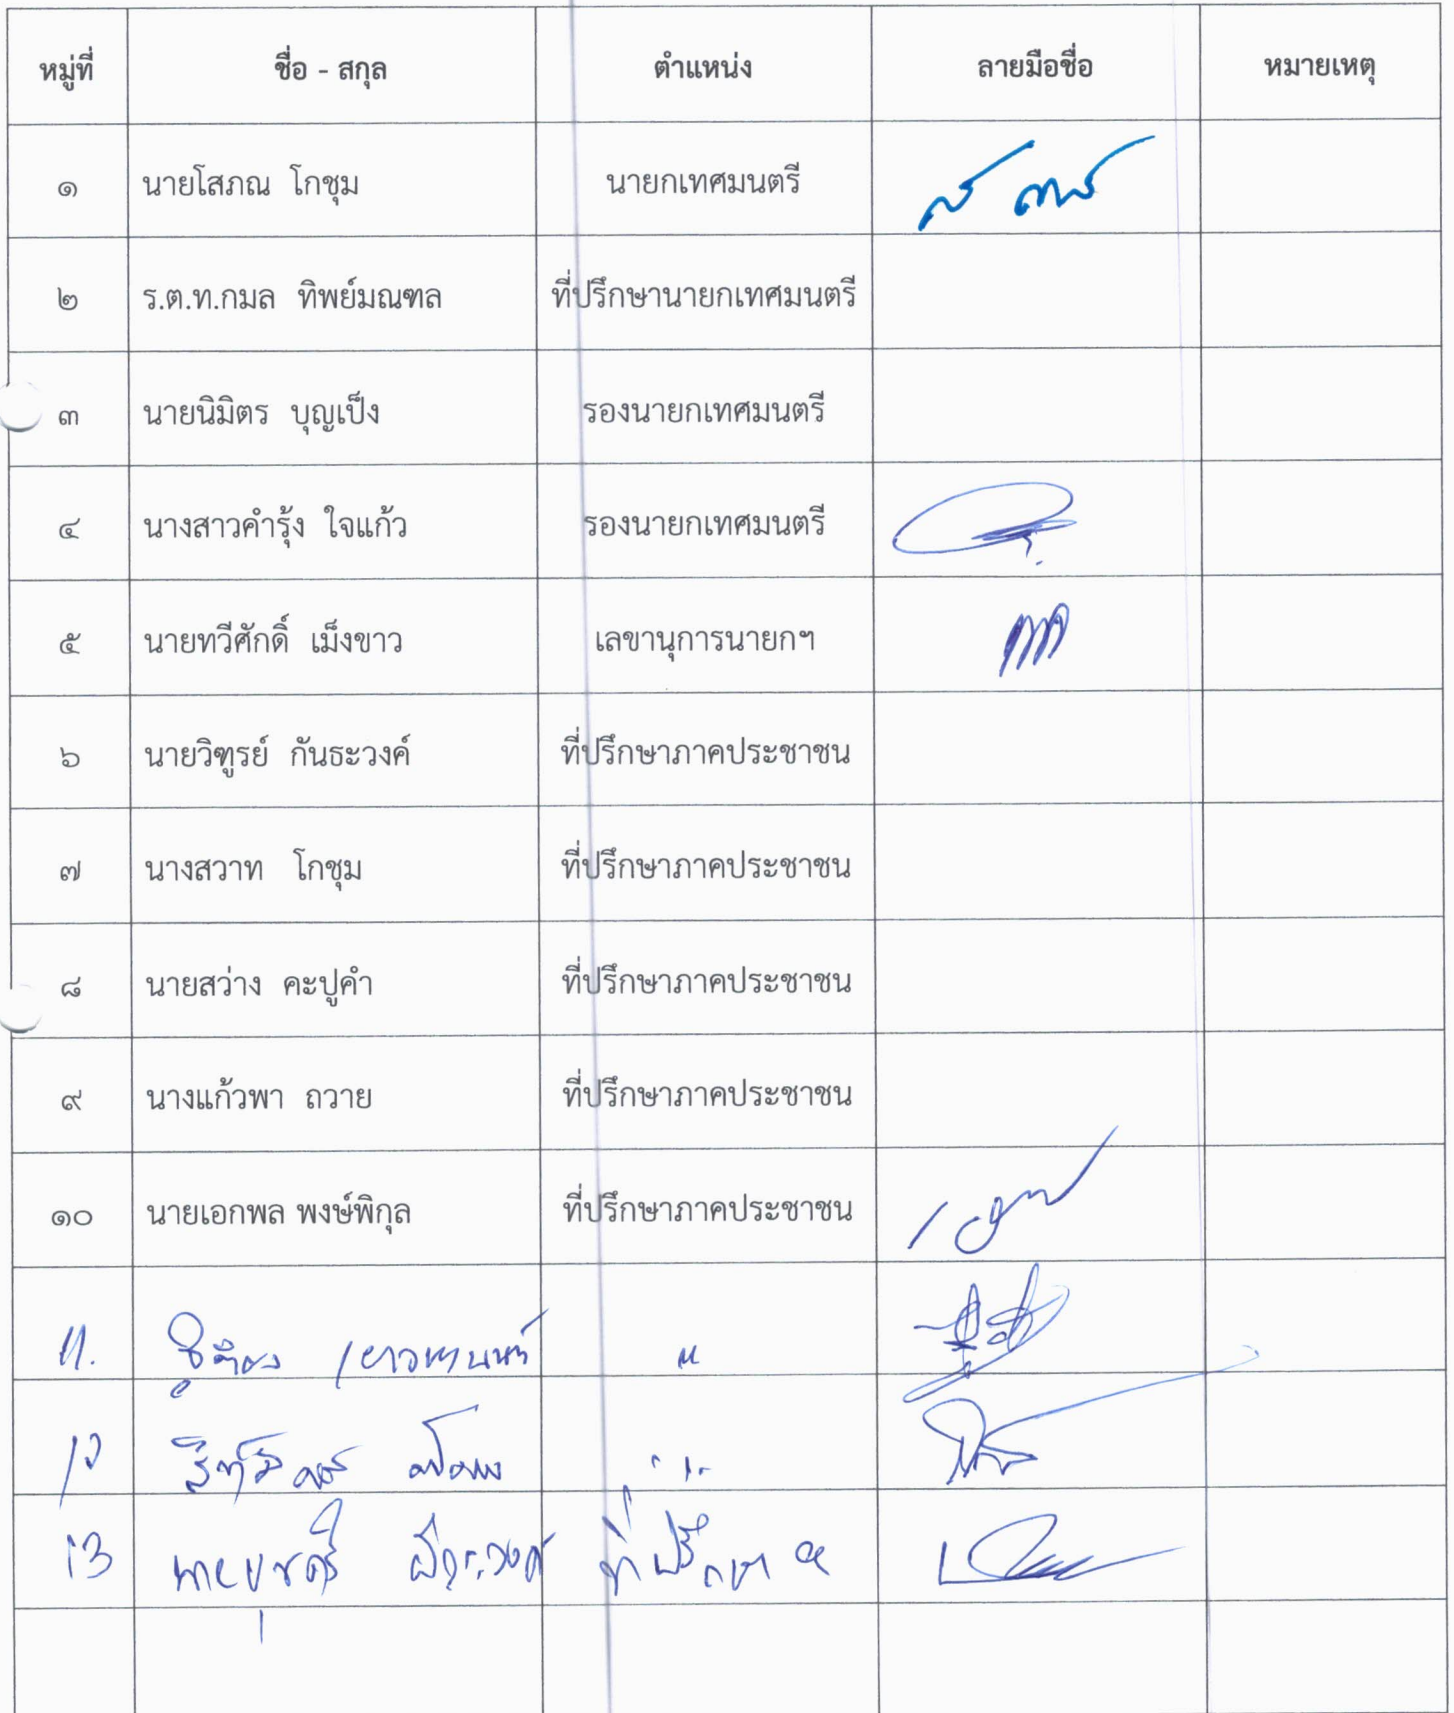 หมู่ที่ ชื่อ - สกุล ตำแหน่ง ลายมือชื่อ หมายเหตุ
๑ นายโสภณ โกชุม นายกเทศมนตรี
๒ ร.ต.ท.กมล ทิพย์มณฑล ที่ปรึกษานายกเทศมนตรี
๓ นายนิมิตร บุญเป็ง รองนายกเทศมนตรี
๔ นางสาวคำรุ้ง ใจแก้ว รองนายกเทศมนตรี
๕ นายทวีศักดิ์ เม็งขาว เลขานุการนายกฯ
๖ นายวิฑูรย์ กันธะวงค์ ที่ปรึกษาภาคประชาชน
๗ นางสวาท โกชุม ที่ปรึกษาภาคประชาชน
๘ นายสว่าง คะปูคำ ที่ปรึกษาภาคประชาชน
๙ นางแก้วพา ถวาย ที่ปรึกษาภาคประชาชน
๑๐ นายเอกพล พงษ์พิกุล ที่ปรึกษาภาคประชาชน
11.
12
13 ที่ปรึกษา